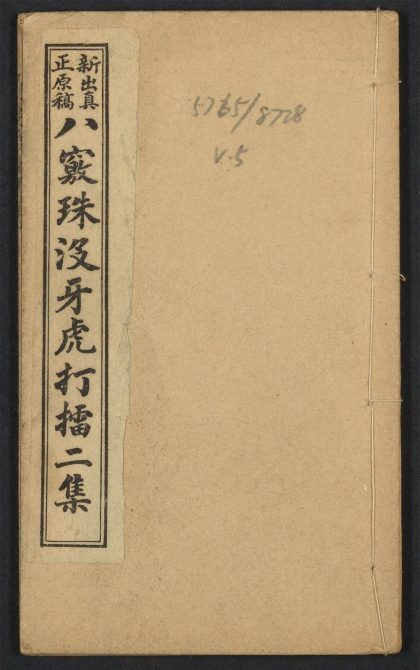 新出真
正原稿
八竅珠没牙虎打擂二集
5765/8728
v.5